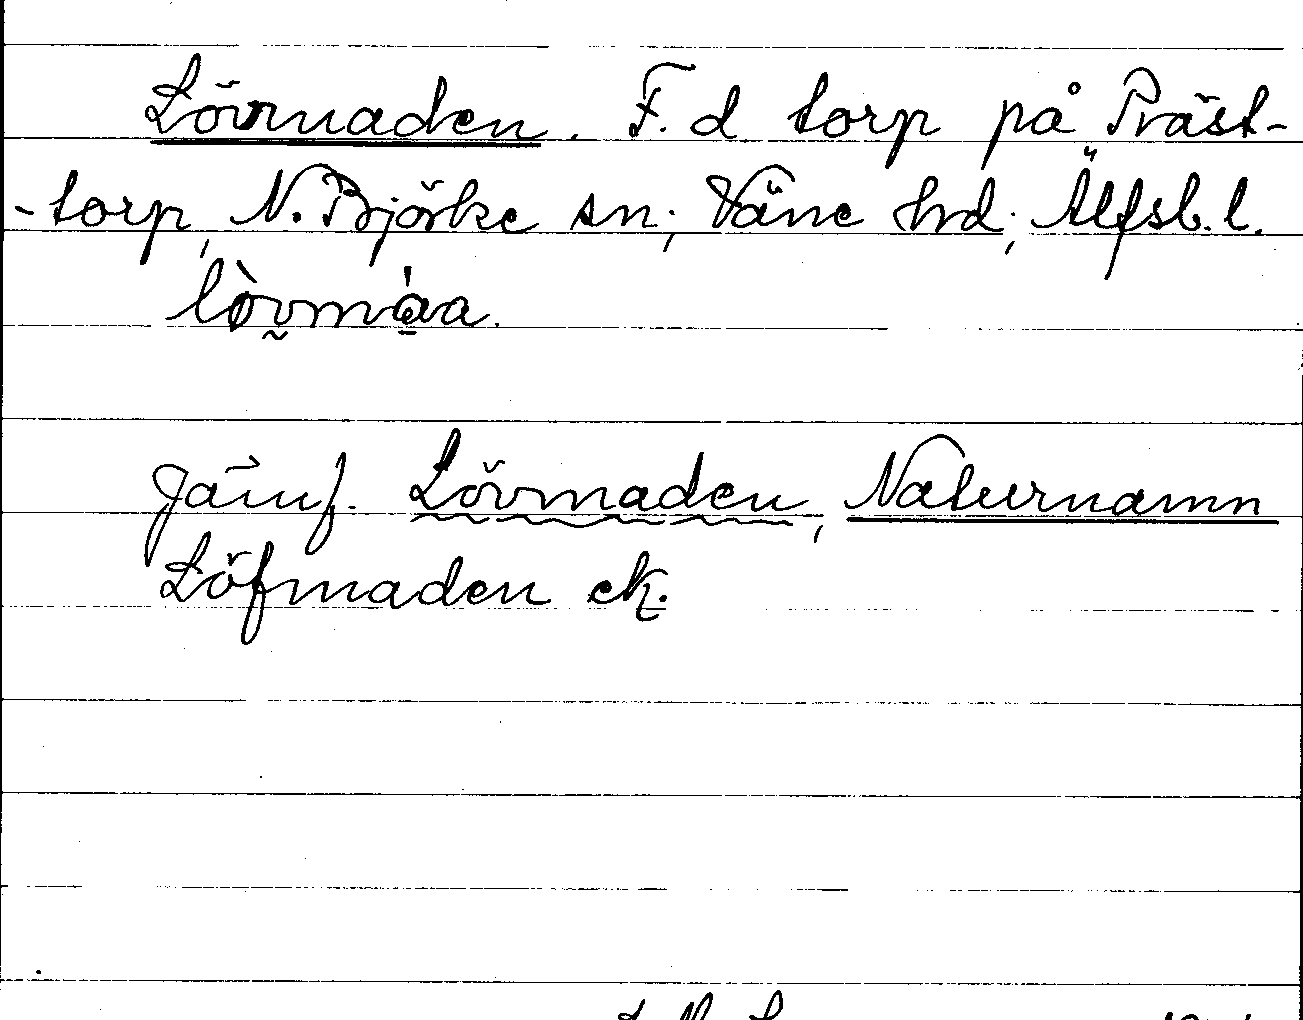 Lövmaden. F. d torp på Präst-
-torp, N. Björke sn; Väne hd; Älfsb. l.
Jämf. Lövmaden, Naturnamn
Löfmaden ek.